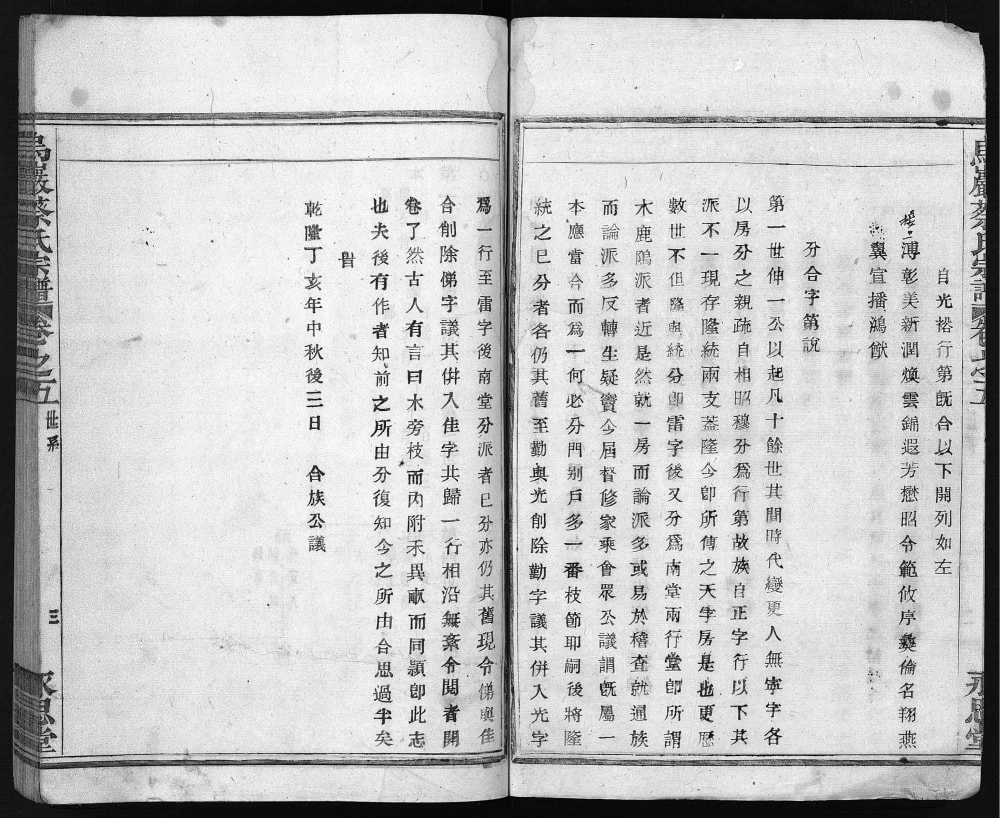 自光𥙿行第旣合以下開列如左
溥彰美新潤煥雲錦遐芳懋昭令範攸序彝倫名翔燕
翼宣播鴻猷
分合字第說
第一世伸一公以起凡十餘世其間時代變更人無寧字各
以房分之親疏自相昭穆分爲行第故族自正字行以下其
派不一現存隆統兩支葢隆今卽所傳之天孛房是也更歷
數世不但隆與統分卽雷字後又分爲南堂兩行堂卽所謂
木鹿隝派者近是然就一房而論派多或易於稽查就通族
而論派多反轉生疑竇今屆督修家乘會眾公議謂旣屬一
本應當合而爲一何必分門别戶多一番枝節耶嗣後將隆
統之已分者各仍其舊至勤與光創除勤字議其併入光字
爲一行至雷字後南堂分派者已分亦仍其舊現令俤與佳
合削除俤字議其併入佳字共歸一行相沿無紊令閱者開
卷了然古人有言曰木旁枝而內附禾異畝而同頴卽此志
也夫後有作者知前之所由分復知今之所由合思過半矣
旹
乾隆丁亥年中秋後三日 合族公議
烏巖蔡氏宗譜 卷之五 世系 三 永思堂